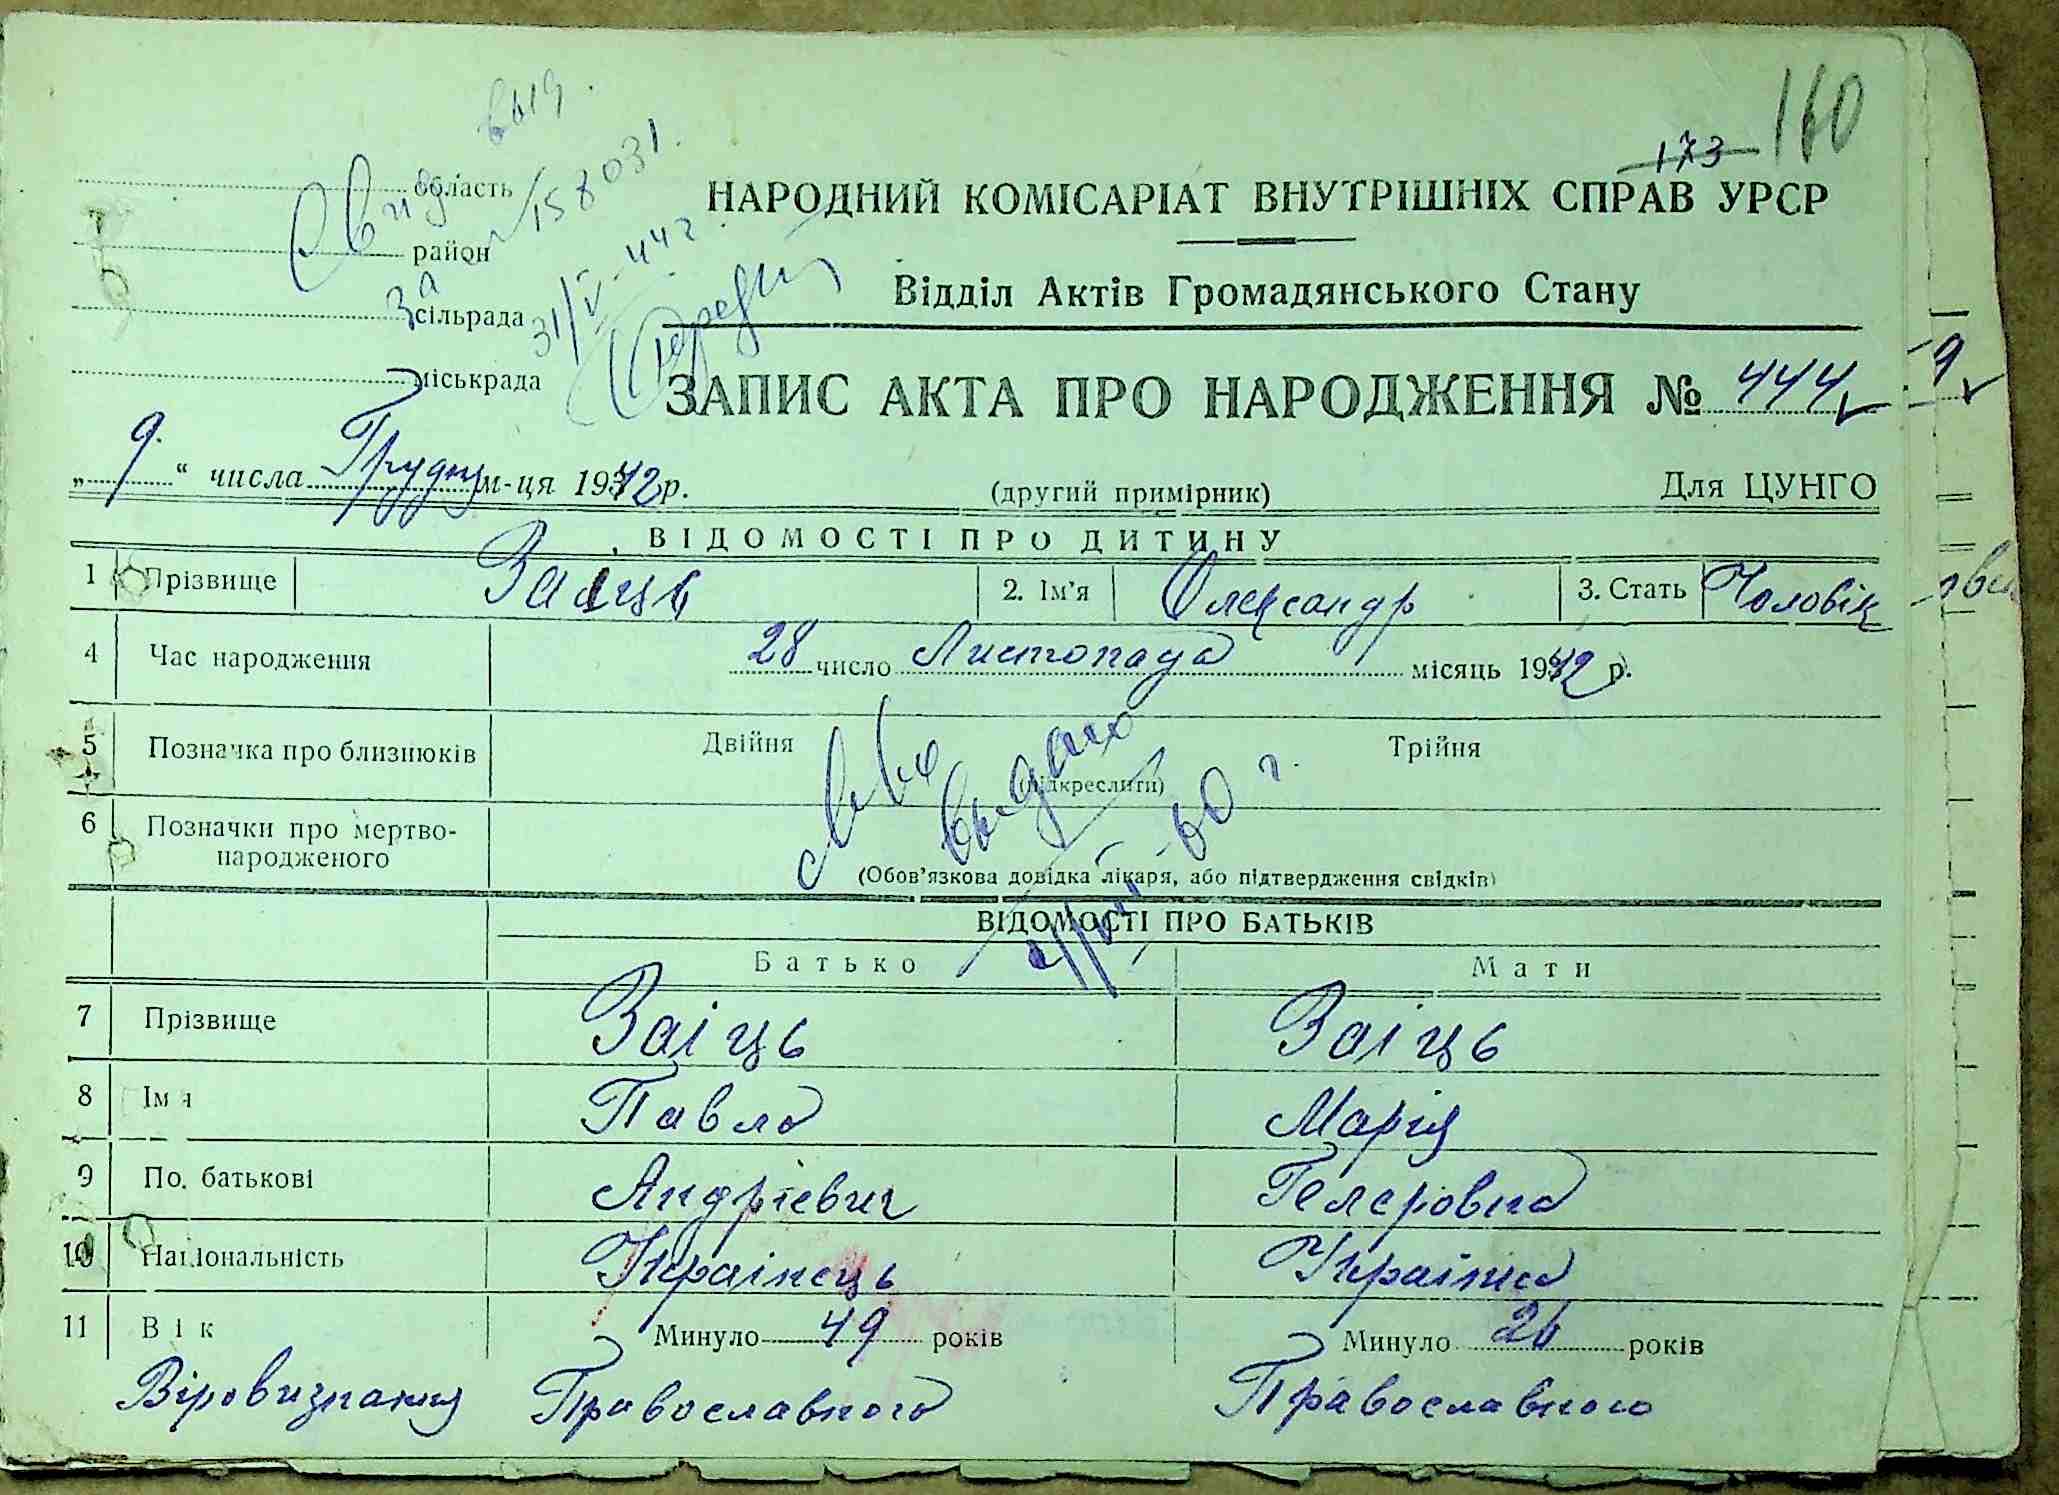 160
173
выд.
Свид
за
№ 158031.
31/V-44 г.
область
район
сільрада
міськрада
НАРОДНИЙ КОМІСАРІАТ ВНУТРІШНІХ СПРАВ УРСР
Відділ Актів Громадянського Стану
ЗАПИС АКТА ПРО НАРОДЖЕННЯ № 444
„9“ числа Грудня м-ця 1942 р.
(другий примірник)
Для ЦУНГО
ВІДОМОСТІ ПРО ДИТИНУ
1 Прізвище Заяць 2. Ім'я Олександр 3. Стать Чоловік
4 Час народження 28 число Листопада місяць 1942 р.
5 Позначка про близнюків Двійня Трійня
(підкреслити)
6 Позначки про мертво-
народженого
(Обов'язкова довідка лікаря, або підтвердження свідків)
св-во
выдано
60 г.
ВІДОМОСТІ ПРО БАТЬКІВ
Батько Мати
7 Прізвище Заіць Заіць
8 Ім'я Павло Марія
9 По батькові Андрієвич
10 Національність Українець Українка
11 Вік Минуло 49 років Минуло 26 років
Віровизнання Православного Православного